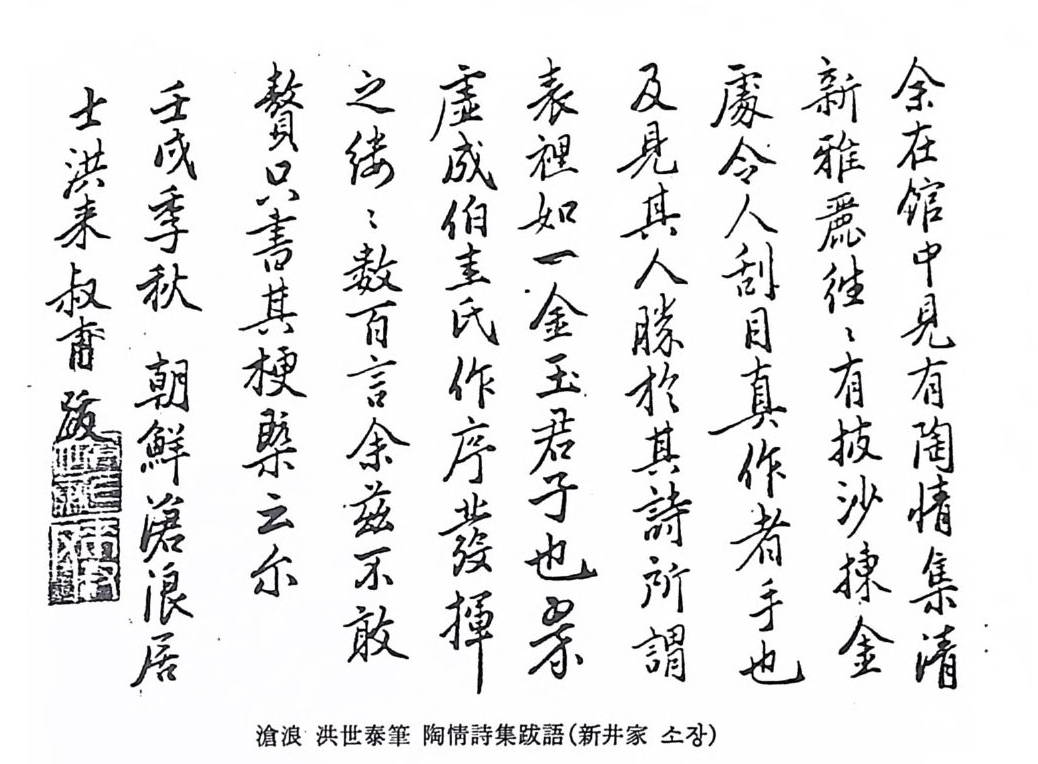 余在館中見有陶情集清
新雅麗往〻有披沙揀金
處令人刮目真作者手也
及見其人勝於其詩所謂
表裡如一金玉君子也翠
虛成伯圭氏作序發揮
之縷〻數百言余茲不敢
贅只書其梗槩云尓
壬戌季秋 朝鮮滄浪居
士洪来叔甫跋
滄浪 洪世泰筆 陶情詩集跋語(新井家 소장)